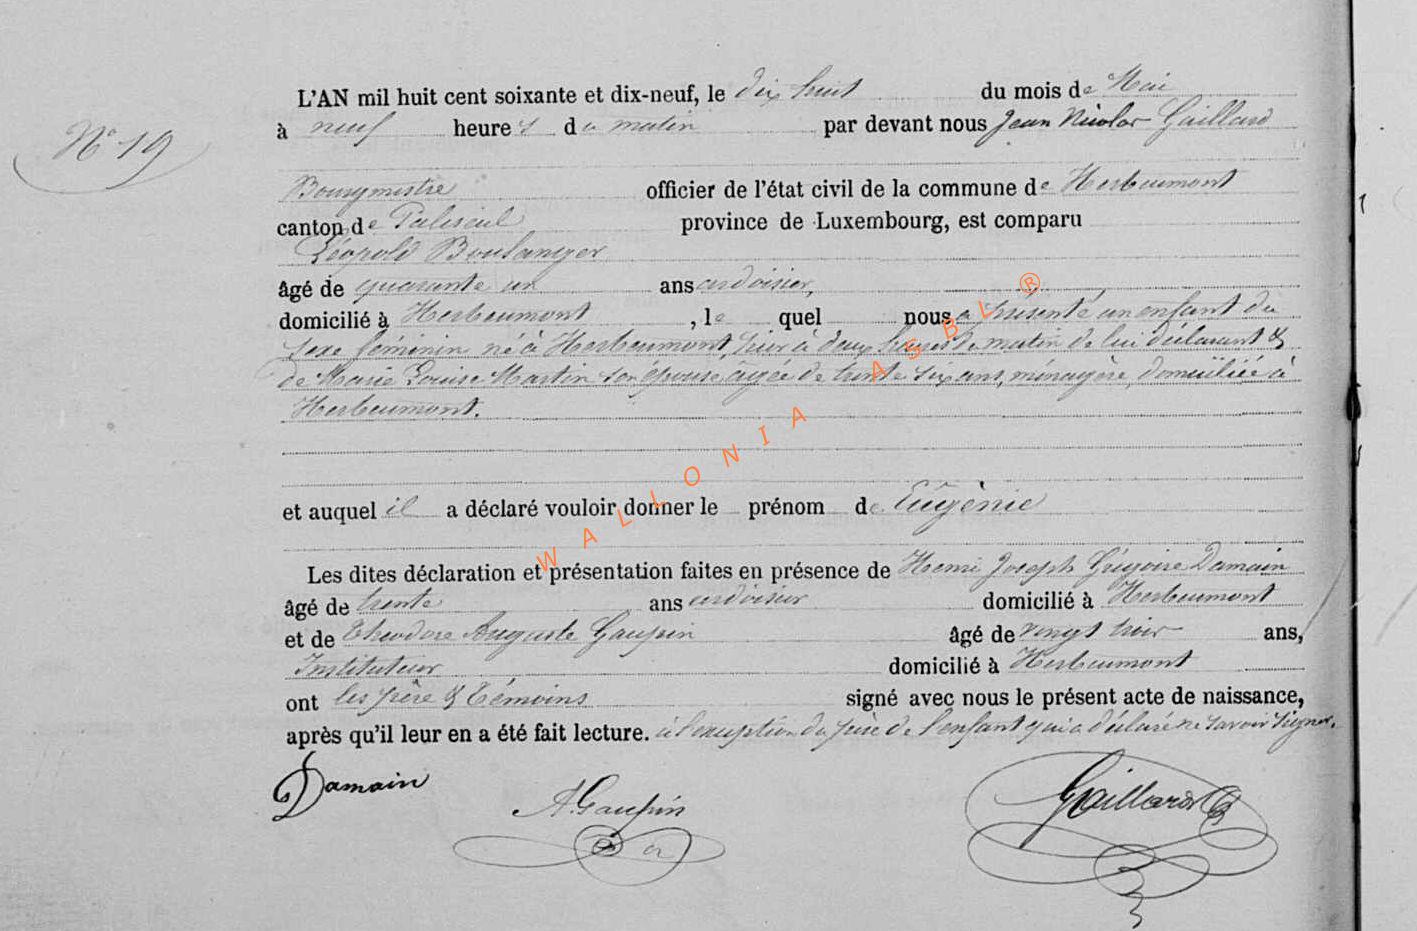 L'AN mil huit cent soixante et dix-neuf, le dix huit du mois de Mai
N° 19
à neuf heures du matin par devant nous Jean Nicolas Gaillard
Bourgmestre officier de l'état civil de la commune de Herbeumont
canton de Paliseul province de Luxembourg, est comparu
Léopold Boulanger
âgé de quarante un ans ardoisier,
domicilié à Herbeumont, le quel nous a présenté un enfant du
sexe féminin né à Herbeumont, hier à deux heures du matin de lui déclarant &
de Marie Louise Martin son épouse âgée de trente six ans, ménagère, domiciliée à
Herbeumont.
et auquel il a déclaré vouloir donner le prénom de Eugènie
Les dites déclaration et présentation faites en présence de Henri Joseph Grégoire Damain
âgé de trente ans ardoisier domicilié à Herbeumont
et de Theodore Auguste Gaupin âgé de vingt trois ans,
Instituteur domicilié à Herbeumont
ont les père & témoins signé avec nous le présent acte de naissance,
après qu'il leur en a été fait lecture. à l'exception du père de l'enfant qui a déclaré ne savoir signer.
Damain
A. Gaupin
Gaillard
WALLONIA ASBL ®